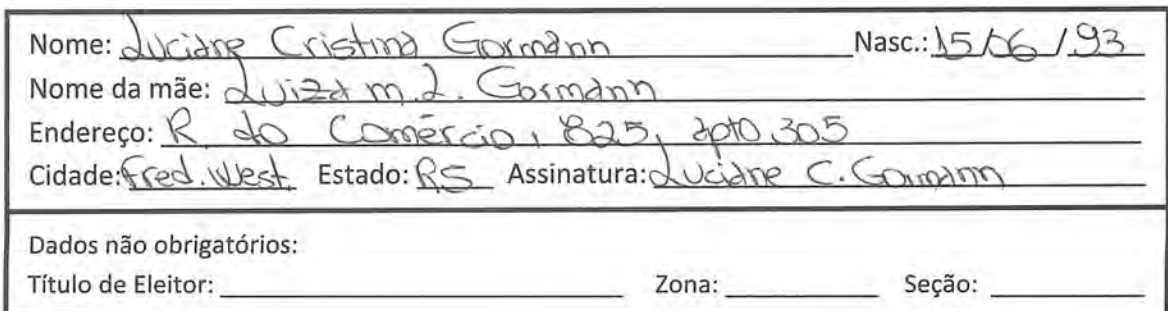 Nome: Luciane Cristina Gormann Nasc.: 15/06/93
Nome da mãe: Luiza m. L. Gormann
Endereço: R do Comércio, 825, apto 305
Cidade: Fred. West. Estado: RS Assinatura: Luciane C. Gormann
Dados não obrigatórios:
Título de Eleitor: Zona: Seção: